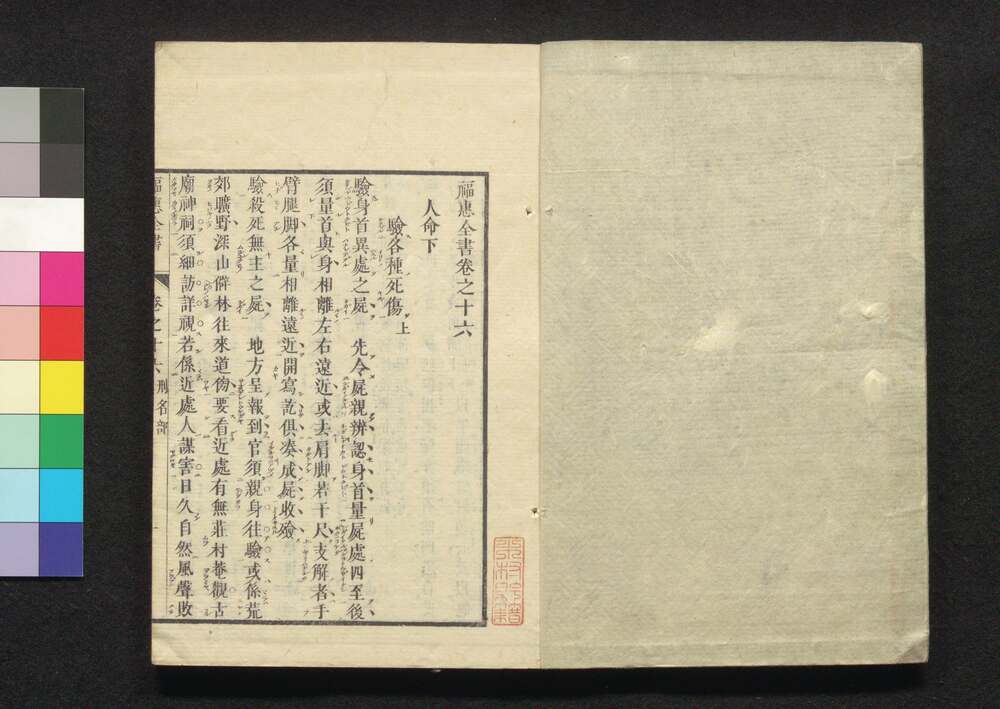 福惠全書卷之十六
人命下
驗各種死傷上
驗身首異處之屍 先令屍親辨認身首量屍處四至後
須量首與身相離左右遠近或去肩脚若干尺支解者手
臂腿脚各量相離遠近開寫訖俱湊成屍收殮
驗殺死無主之屍 地方呈報到官須親身往驗或係荒
郊曠野深山僻林往來道傍要看近處有無莊村菴觀古
廟神祠須細訪詳視若係近處人謀害日久自然風聲敗
福惠全書 卷之十六 刑名部